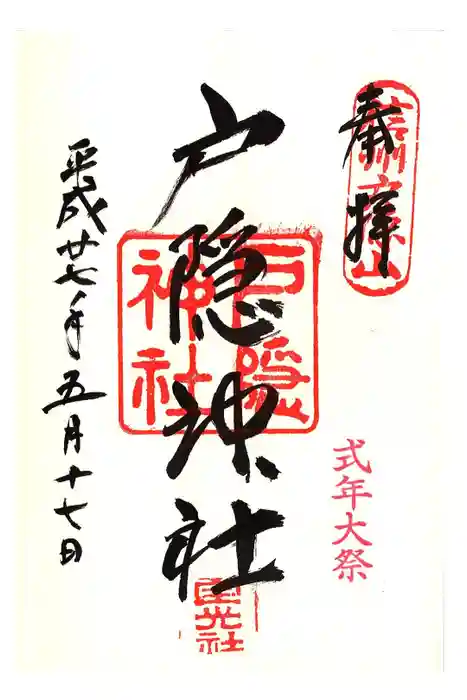 奉拝
信州戸隠山
式年大祭
戸隠神社
戸隠
神社
宝光社
平成廿七年五月十七日